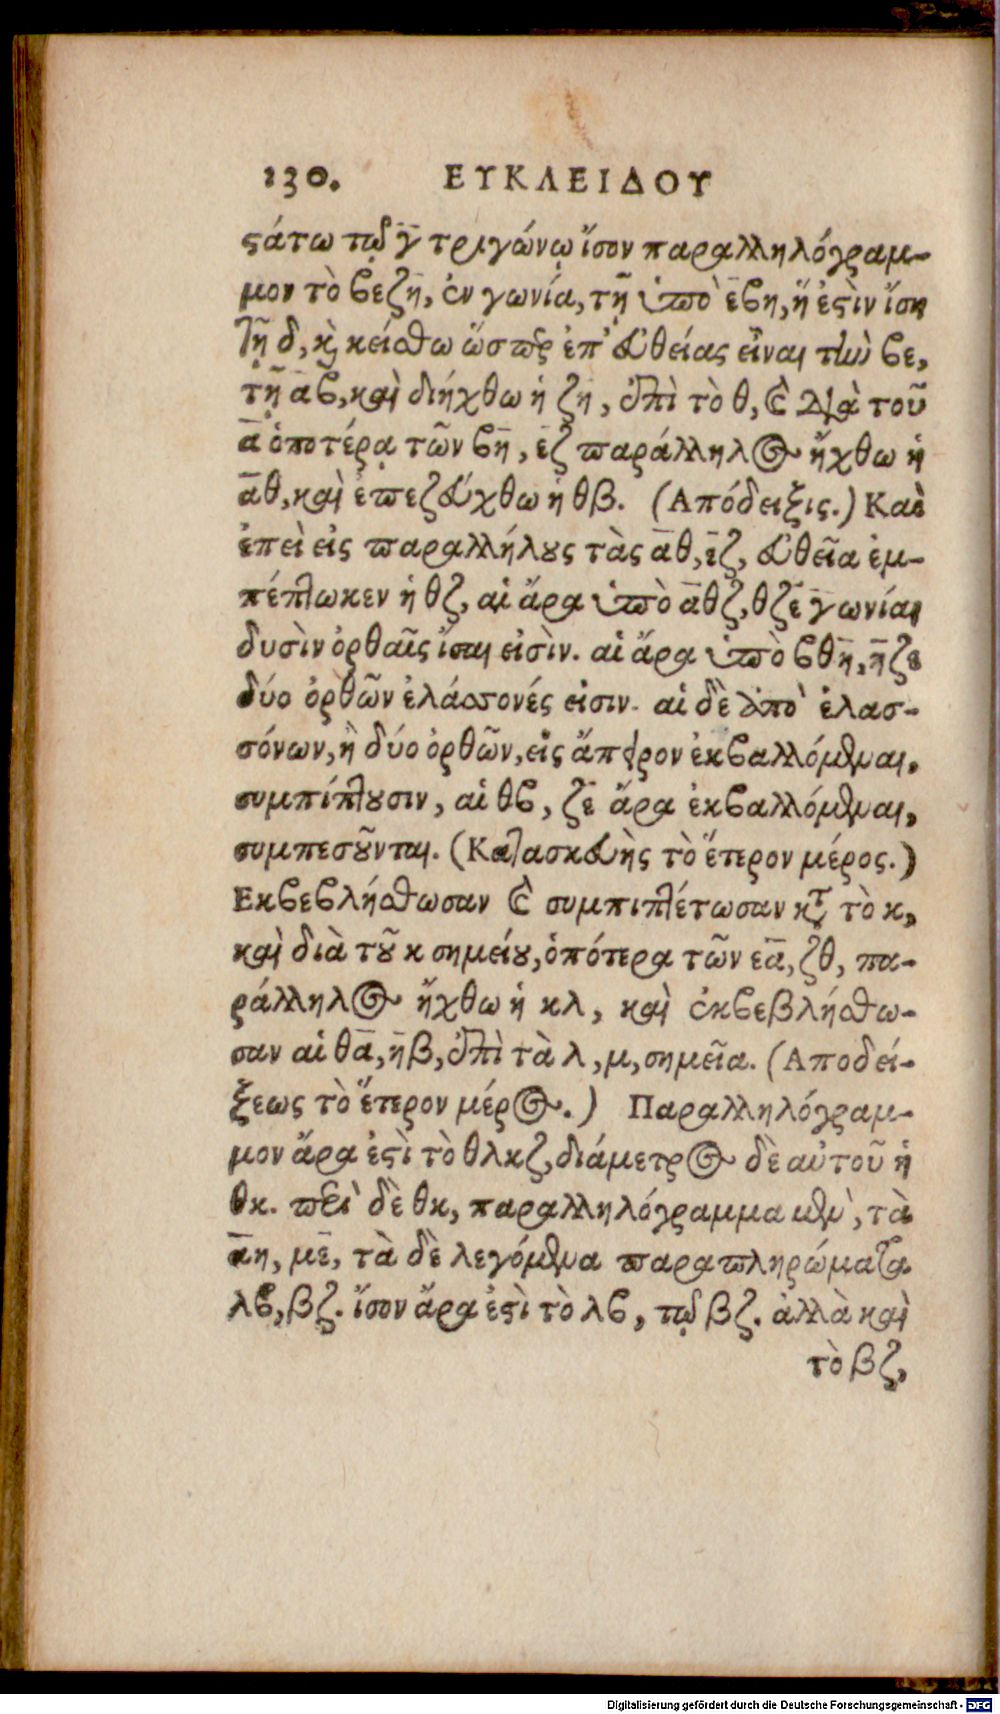 130. ΕΥΚΛΕΙΔΟΥ
ϛάτω τῷ γ̄ τριγώνῳ ἴσον παραλληλόγραμ-
μον τὸ βεζη̄, ἐν γωνία, τῆ ὑπὸ ε̄βη, ἥ ἐϛὶν ἴση
τῇ δ, κὶ κείσθω ὥστε ἐπ' εὐθείας εἶναι τὴν βε,
τῇ ᾱβ, καὶ διήχθω ἡ ζη, ἐπὶ τὸ θ, καὶ διὰ τοῦ
ᾱ ὁποτέρᾳ τῶν βη̄, ε̄ζ παράλληλος ἤχθω ἡ
ᾱθ, καὶ ἐπεζεύχθω ἡ θβ. (Απόδειξις.) Καὶ
ἐπεὶ εἰς παραλλήλους τὰς ᾱθ, ε̄ζ, εὐθεῖα ἐμ-
πέπτωκεν ἡ θζ, αἱ ἄρα ὑπὸ ᾱθζ, θζε̄ γωνίαι
δυσὶν ὀρθαῖς ἴσαι εἰσὶν. αἱ ἄρα ὑπὸ βθη̄, η̄ζε
δύο ὀρθῶν ἐλάσσονές εἰσιν. αἱ δὲ ἀπὸ ἐλασ-
σόνων, ἢ δύο ὀρθῶν, εἰς ἄπειρον ἐκβαλλόμεναι,
συμπίπτουσιν, αἱ θβ, ζε̄ ἄρα ἐκβαλλόμεναι,
συμπεσοῦνται. (Κατασκευῆς τὸ ἕτερον μέρος.)
Εκβεβλήσθωσαν καὶ συμπιπτέτωσαν κτ τὸ κ,
καὶ διὰ τοῦ κ σημείου, ὁπότερα τῶν εᾱ, ζθ, πα-
ράλληλος ἤχθω ἡ κλ, καὶ ἐκβεβλήσθω-
σαν αἱ θᾱ, η̄β, ἐπὶ τὰ λ, μ, σημεῖα. (Αποδεί-
ξεως τὸ ἕτερον μέρος.) Παραλληλόγραμ-
μον ἄρα ἐϛὶ τὸ θλκζ, διάμετρος δὲ αὐτοῦ ἡ
θκ. περὶ δὲ θκ, παραλληλόγραμμα μὲν, τὰ
ᾱη, με̄, τὰ δὲ λεγόμενα παραπληρώματα
λβ, βζ. ἴσον ἄρα ἐϛὶ τὸ λβ, τῷ βζ. ἀλλὰ καὶ
τὸ βζ,
Digitalisierung gefördert durch die Deutsche Forschungsgemeinschaft - DFG